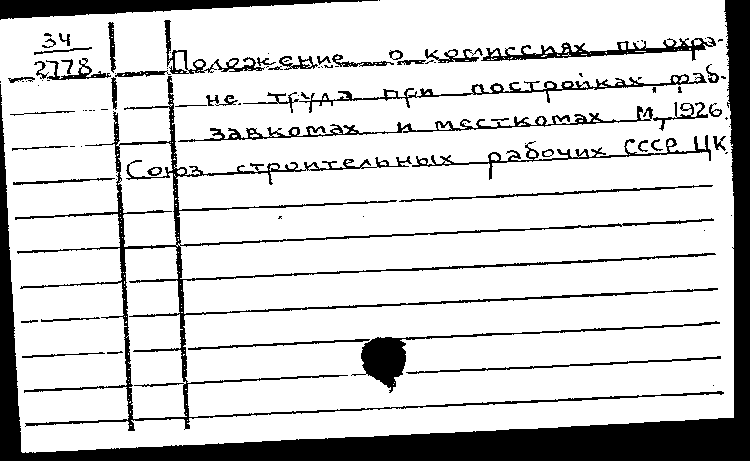 34
2778
Положение о комиссиях по охра-
не труда при постройках, фаб-
завкомах и месткомах М, 1926
Союз строительных рабочих СССР. ЦК